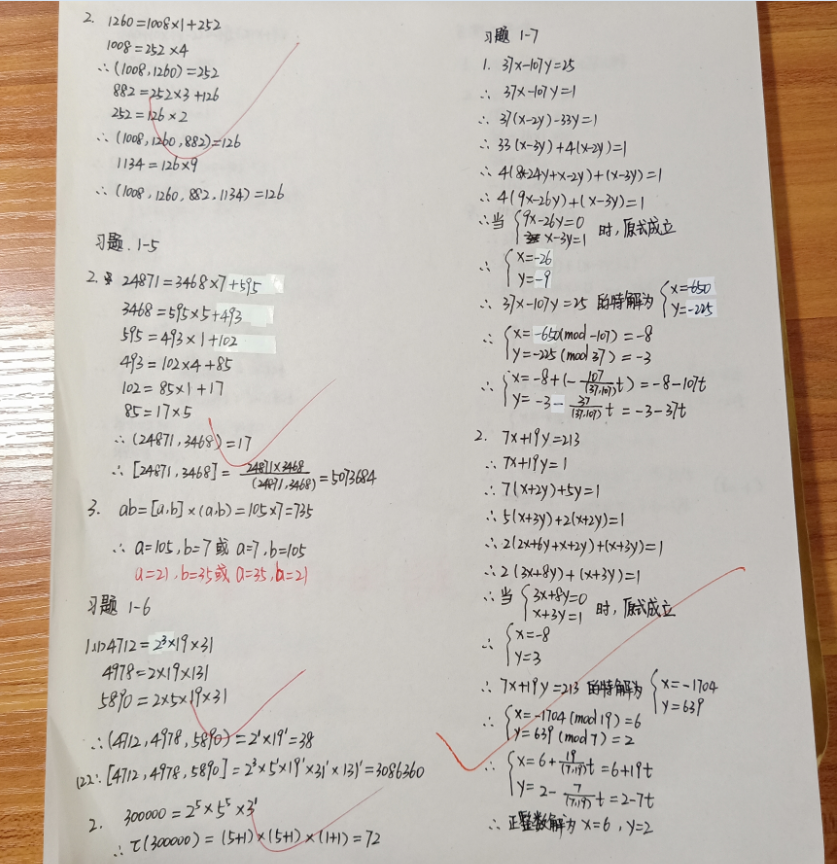 2. 1260=1008×1+252
1008=252×4
∴(1008,1260)=252
882=252×3+126
252=126×2
∴(1008,1260,882)=126
1134=126×9
∴(1008,1260,882,1134)=126
习题.1-5
2. 24871=3468×7+595
3468=595×5+493
595=493×1+102
493=102×4+85
102=85×1+17
85=17×5
∴(24871,3468)=17
∴[24871,3468]=24871×3468/(24871,3468)=5073684
3. ab=[a,b]×(a,b)=105×7=735
∴a=105,b=7或a=7,b=105
a=21,b=35或a=35,b=21
习题 1-6
1.(1)4712=2³×19×31
4978=2×19×131
5890=2×5×19×31
∴(4712,4978,5890)=2¹×19¹=38
(2)∴[4712,4978,5890]=2³×5¹×19¹×31¹×131¹=3086360
2. 300000=2⁵×5⁵×3¹
∴τ(300000)=(5+1)×(5+1)×(1+1)=72
习题 1-7
1. 37x-107y=25
∴37x-107y=1
∴37(x-2y)-33y=1
∴33(x-3y)+4(x-2y)=1
∴4(8x-24y+x-2y)+(x-3y)=1
∴4(9x-26y)+(x-3y)=1
∴当{9x-26y=0
x-3y=1 时,原式成立
∴{x=-26
y=-9
∴37x-107y=25 的特解为{x=-650
y=-225
∴{x=-650(mod-107)=-8
y=-225(mod 37)=-3
∴{x=-8+(-107/(37,107)t)=-8-107t
y=-3-37/(37,107)t=-3-37t
2. 7x+19y=213
∴7x+19y=1
∴7(x+2y)+5y=1
∴5(x+3y)+2(x+2y)=1
∴2(2x+6y+x+2y)+(x+3y)=1
∴2(3x+8y)+(x+3y)=1
∴当{3x+8y=0
x+3y=1 时,原式成立
∴{x=-8
y=3
∴7x+19y=213 的特解为{x=-1704
y=639
∴{x=-1704(mod 19)=6
y=639(mod 7)=2
∴{x=6+19/(7,19)t=6+19t
y=2-7/(7,19)t=2-7t
∴正整数解为x=6,y=2